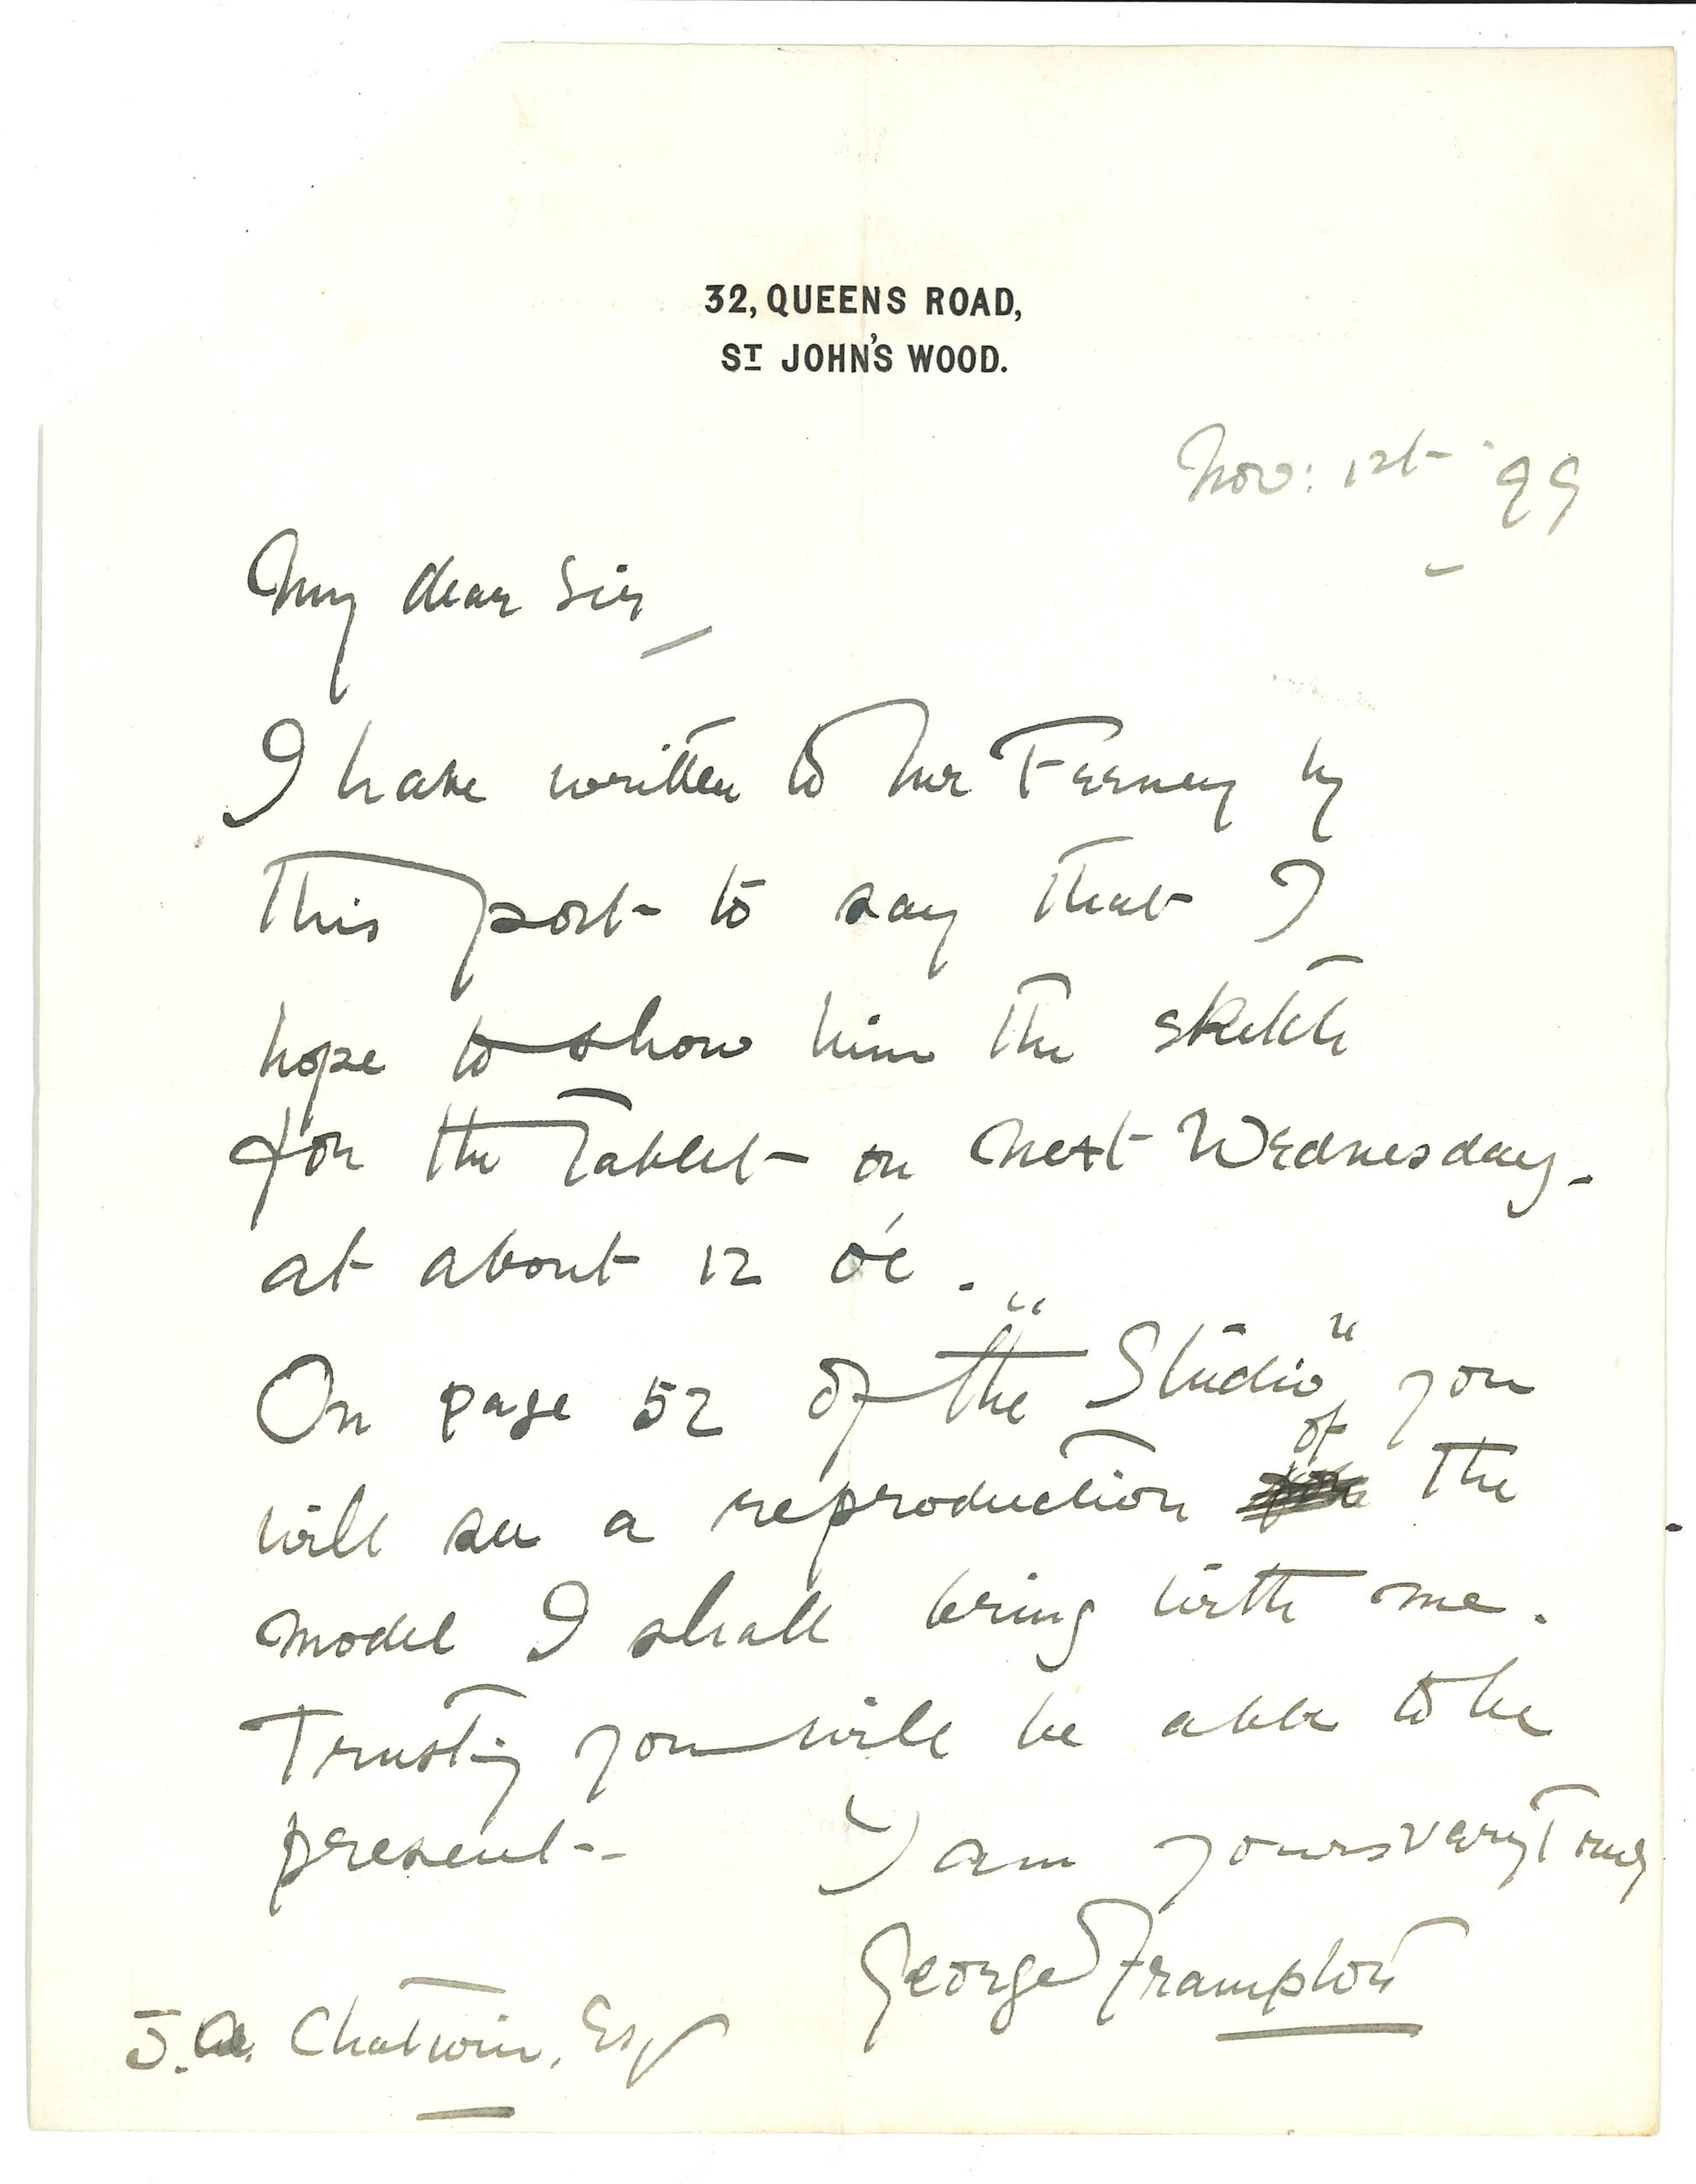 32, QUEENS ROAD,
ST JOHN'S WOOD.
Nov: 1st '99
My dear Sir,
I have written to Mr Feeney by
this post to say that I
hope to show him the sketch
for the Tablet on next Wednesday.
at about 12 o'c.
On page 52 of "the Studio" you
of
will see a reproduction the
model I shall bring with me.
Trusting you will be able to be
present-
I am yours very Truly
George Frampton
J.A. Chatwin, Esq